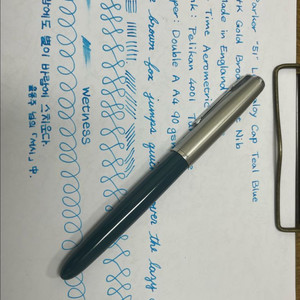 Parker '51' Cap Teal Blue
Gold Nib
Made in England
Time Aerometric
Ink: Pelikan 4001
Double A A4 90 gsm
brown fox jumps over the lazy
Wetness
별이 바람에 스치운다.
윤동주 님의 「서시」 中.